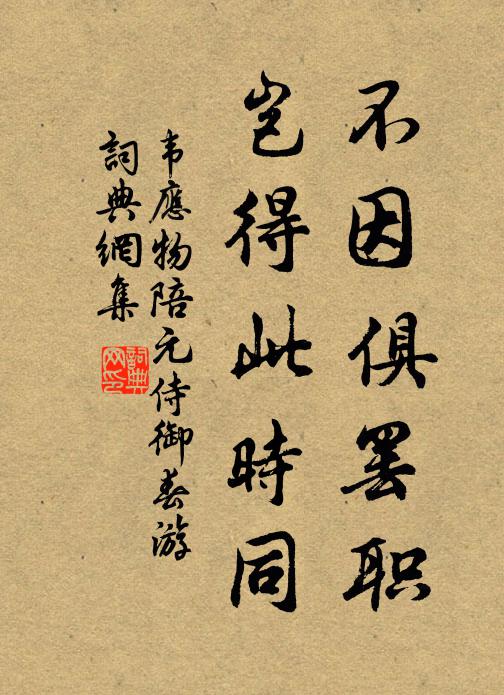 不因俱罢职
岂得此時同
韦應物陪元侍御春游
詞典網集
詞典网印